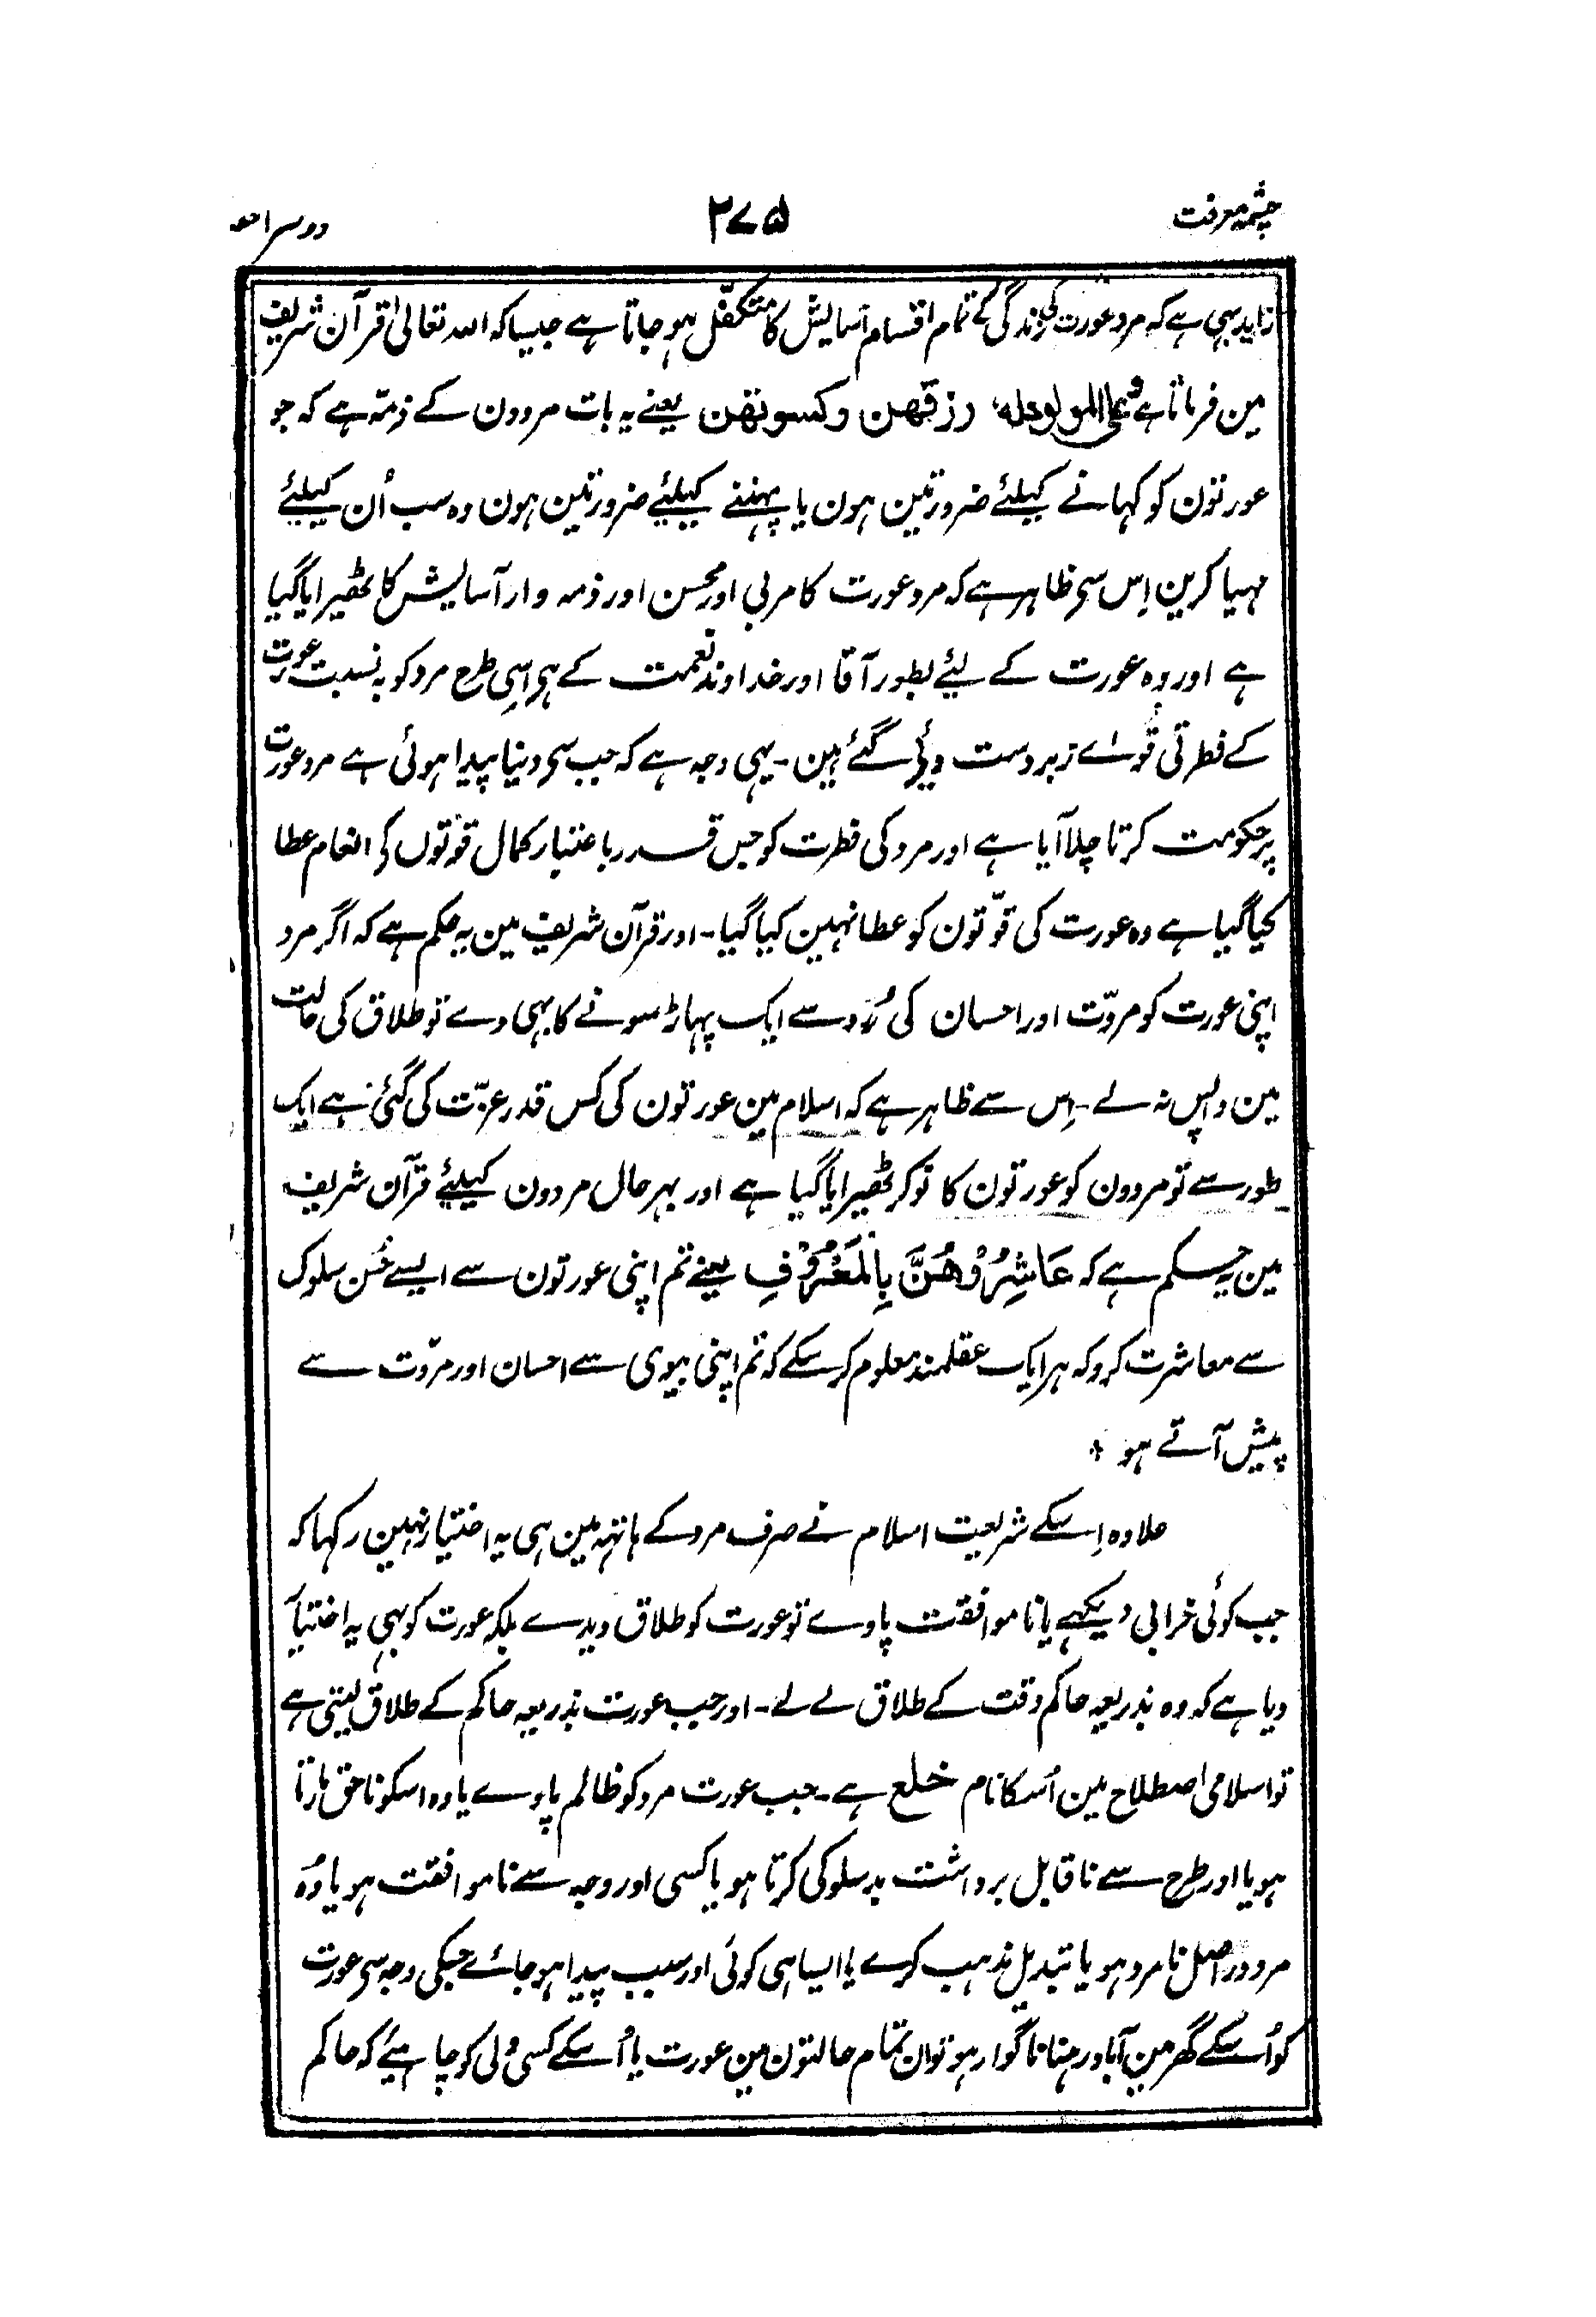 چشمہ معرفت
۲۷۵
دوسرا حصہ
زاید یہی ہے کہ مرد عورت کی زندگی کے تمام اقسام آسایش کا متکفّل ہو جاتا ہے جیسا کہ اللہ تعالیٰ قرآن شریف
مین فرماتا ہے وعلی المولود لہ رزقھن وکسوتھن یعنے یہ بات مردون کے ذمّہ ہے کہ جو
عورتون کو کہانے کیلئے ضرورتین ہون یا پہننے کیلئے ضرورتین ہون وہ سب اُن کیلئے
مہیا کرین اِس سی ظاہر ہے کہ مرد عورت کا مربی اور محسن اور ذمہ وار آسایش کا ٹھیرایا گیا
ہے اور وہ عورت کے لیئے بطور آقا اور خداوند نعمت کے ہی اِسی طرح مرد کو بہ نسبت عورت
کے فطرتی قُوائے زبردست دئیے گئے ہین - یہی وجہ ہے کہ جب سی دنیا پیدا ہوئی ہے مرد عورت
پر حکومت کرتا چلا آیا ہے اور مرد کی فطرت کو جس قدر باعتبار کمال قوّتوں کی انعام عطا
کیا گیا ہے وہ عورت کی قوّتون کو عطا نہین کیا گیا - اور قرآن شریف مین یہ حکم ہے کہ اگر مرد
اپنی عورت کو مروّت اور احسان کی رُو سے ایک پہاڑ سونے کا بہی دے تو طلاق کی حالت
مین واپس نہ لے - اِس سے ظاہر ہے کہ اسلام مین عورتون کی کس قدر عزّت کی گئی ہے ایک
طور سے تو مردون کو عورتون کا نوکر ٹھیرایا گیا ہے اور بہرحال مردون کیلئے قرآن شریف
مین یہ حکم ہے کہ عَاشِرُوْھُنَّ بِالْمَعْرُوْفِ یعنے تم اپنی عورتون سے ایسے حُسن سلوک
سے معاشرت کرو کہ ہر ایک عقلمند معلوم کر سکے کہ تم اپنی بیوی سے احسان اور مروّت سے
پیش آتے ہو ٭
علاوہ اِسکے شریعت اسلام نے صرف مرد کے ہاتہہ مین ہی یہ اختیار نہین رکہا کہ
جب کوئی خرابی دیکہے یا ناموافقت پاوے تو عورت کو طلاق دیدے بلکہ عورت کو بہی یہ اختیار
دیا ہے کہ وہ بذریعہ حاکم وقت کے طلاق لے لے - اور جب عورت بذریعہ حاکم کے طلاق لیتی ہے
تو اسلامی اصطلاح مین اُسکا نام خلع ہے - جب عورت مرد کو ظالم پاوے یا وہ اسکو ناحق مارتا
ہو یا اور طرح سے ناقابل برداشت بدسلوکی کرتا ہو یا کسی اور وجہ سے ناموافقت ہو یا وُہ
مرد دراصل نامرد ہو یا تبدیل مذہب کرے یا ایسا ہی کوئی اور سبب پیدا ہو جائے جسکی وجہ سی عورت
کو اُسکے گھر مین آباد رہنا ناگوار ہو تو ان تمام حالتون مین عورت یا اُسکے کسی ولی کو چاہیئے کہ حاکم